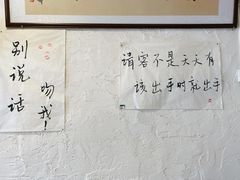 别说话
吻我！
请客不是天天有
该出手时就出手